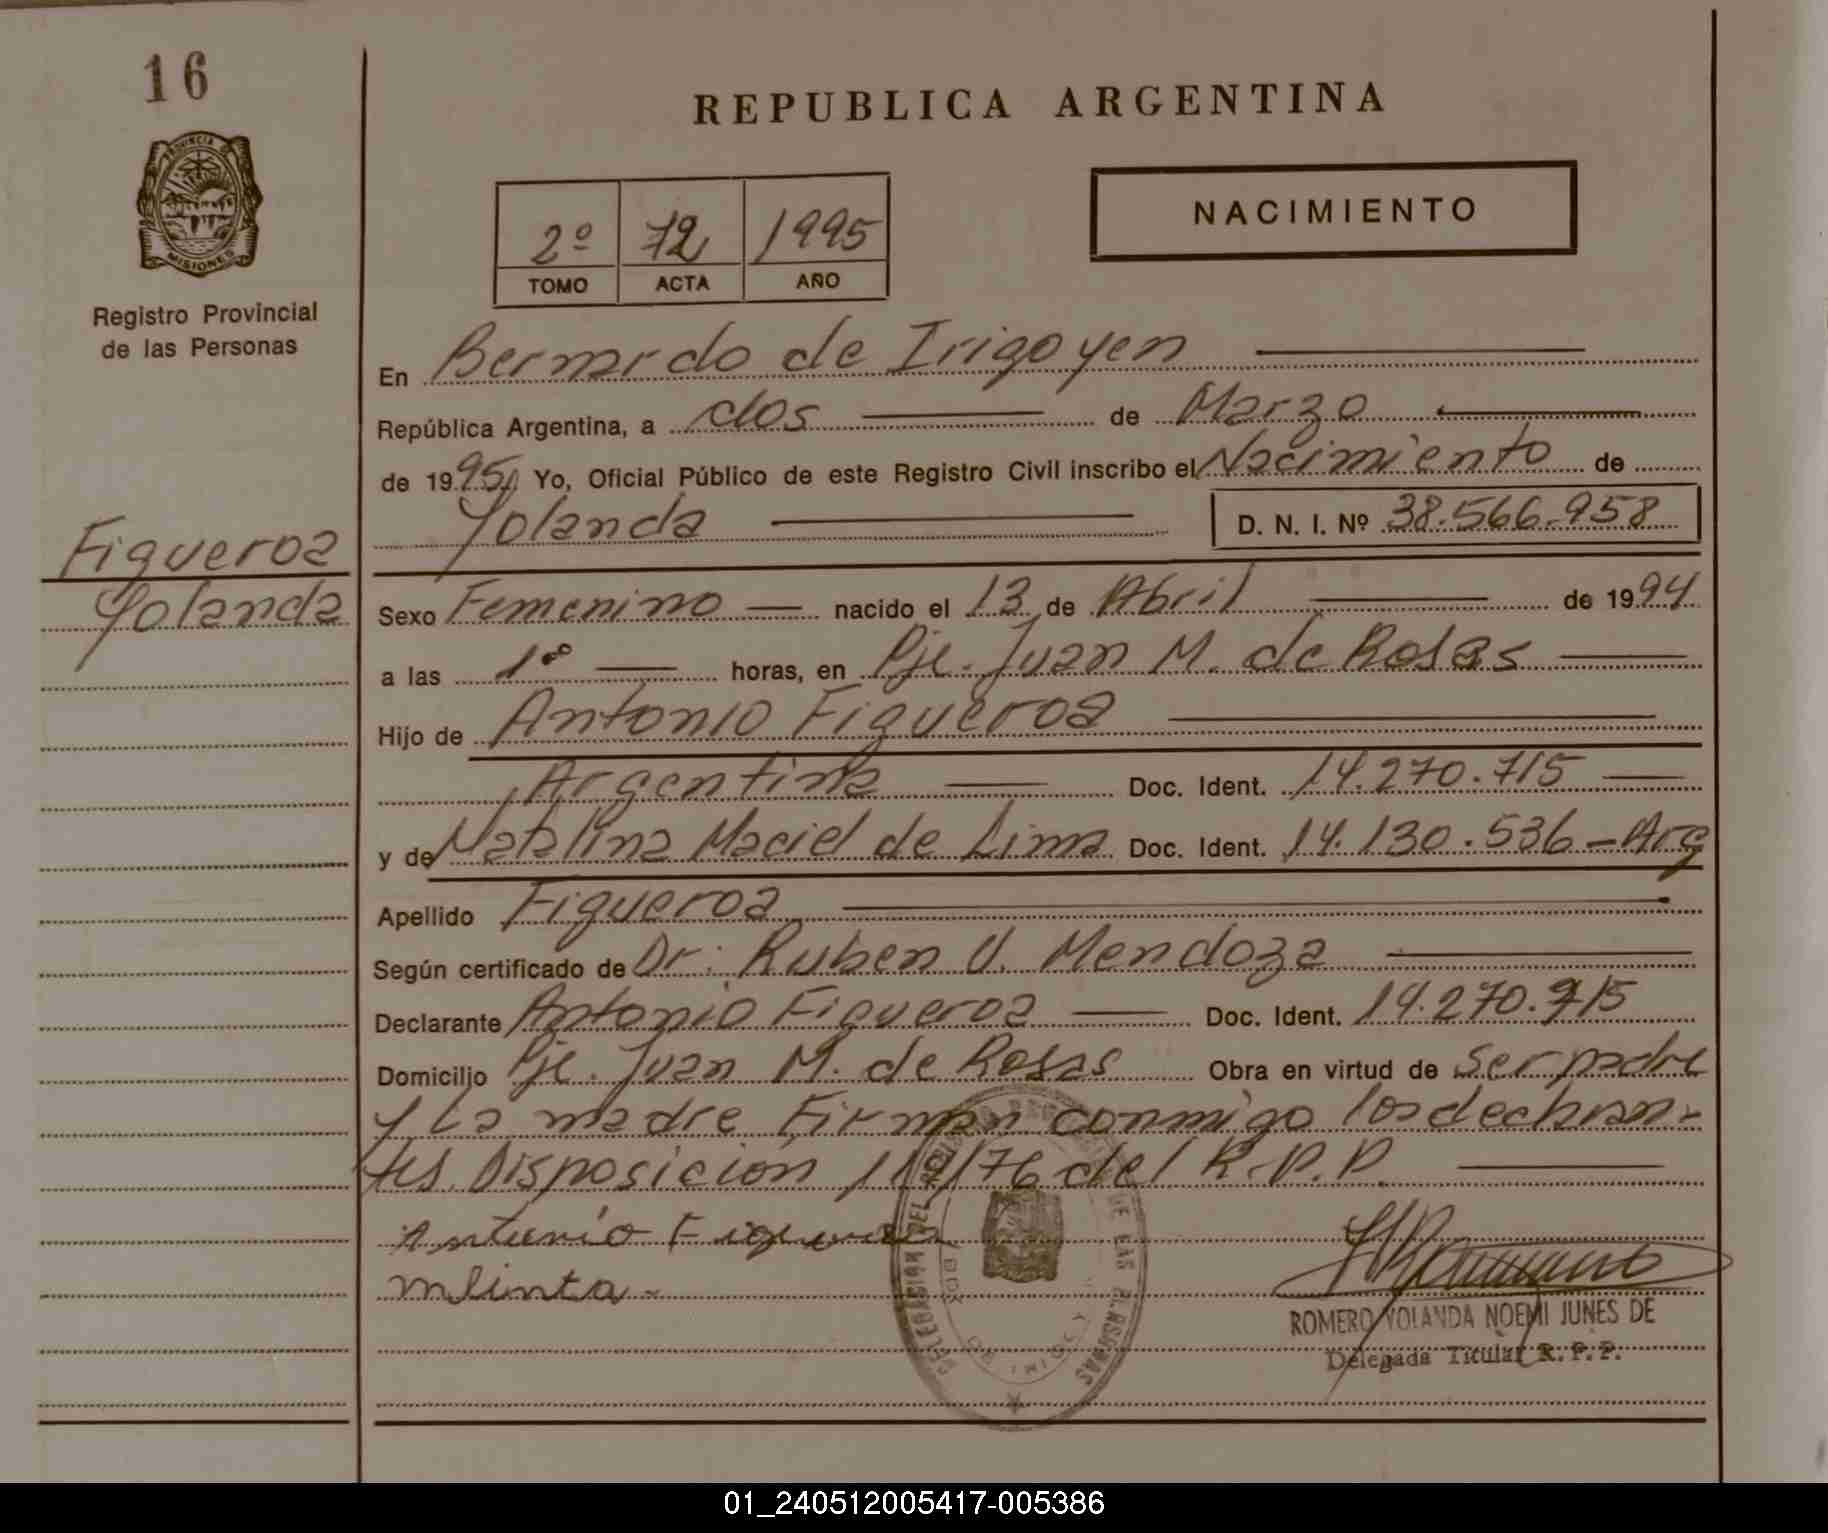 16
PROVINCIA DE
MISIONES
Registro Provincial
de las Personas
Figueroa
Yolanda
REPUBLICA ARGENTINA
2º 72 1995
TOMO ACTA AÑO
NACIMIENTO
En Bernardo de Irigoyen
República Argentina, a dos de Marzo
de 1995 Yo, Oficial Público de este Registro Civil inscribo el Nacimiento de
Yolanda D. N. I. Nº 38.566.958
Sexo Femenino nacido el 13 de Abril de 1994
a las horas, en Pje. Juan M. de Rosas
Hijo de Antonio Figueroa
Argentina Doc. Ident. 14.270.715
y de Natalina Maciel de Lima Doc. Ident. 14.130.536 - Arg
Apellido Figueroa
Según certificado de Dr: Ruben V. Mendoza
Declarante Antonio Figueroa Doc. Ident. 14.270.715
Domicilio Pje. Juan M. de Rosas Obra en virtud de ser padre
y La madre Firman conmigo los declaran-
tes. Disposicion /76 del R.P.P.
Antonio Figueroa
DELEGACION DEL REGISTRO DE LAS PERSONAS
ROMERO YOLANDA NOEMI JUNES DE
Delegada Titular R. P. P.
01_240512005417-005386